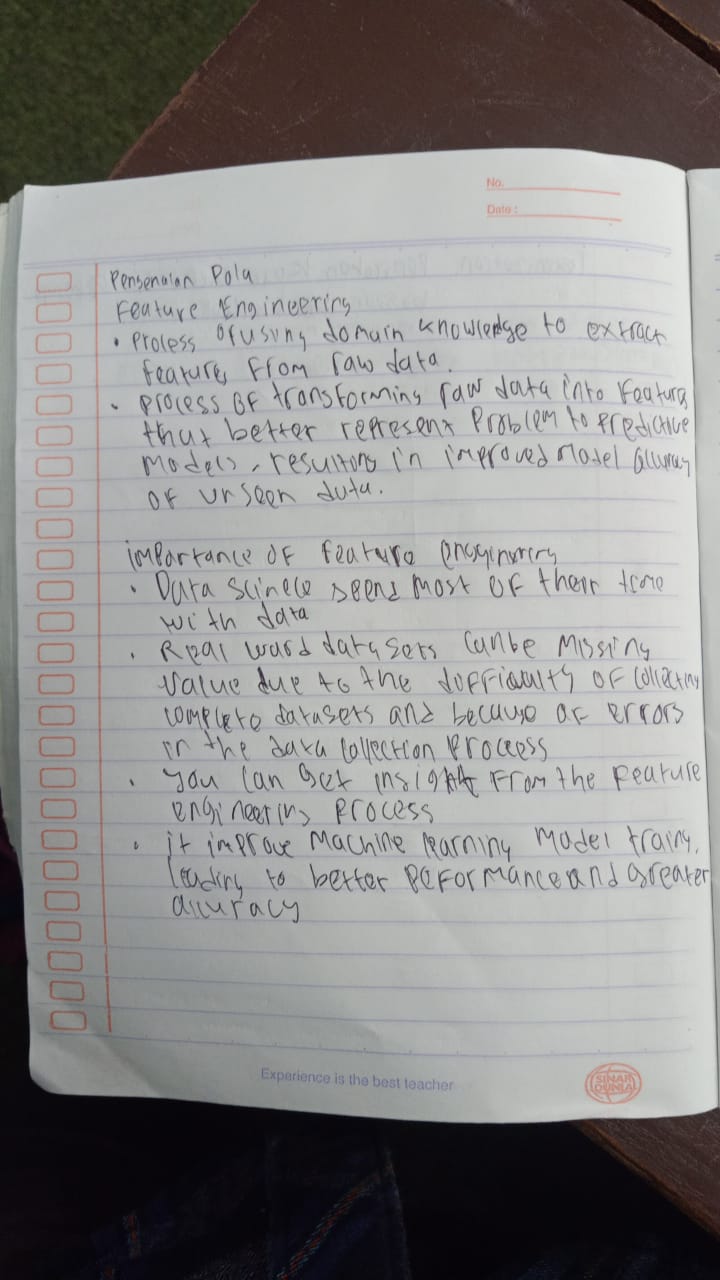 No.
Date :
Pengenalan Pola
Feature Engineering
• Process of using domain knowledge to extract
features from raw data.
• process of transforming raw data into features
that better represent problem to predictive
models, resulting in improved model accuracy
of unseen data.
importance of feature engginering
• Data scinece spend most of their time
with data
• Real word datasets can be missing
value due to the difficulty of collecting
complete datasets and because of errors
in the data collection process
• you can get insight from the feature
engineering process
• it improve machine learning model traing,
leading to better peformance and greater
accuracy
Experience is the best teacher
SINAR
DUNIA